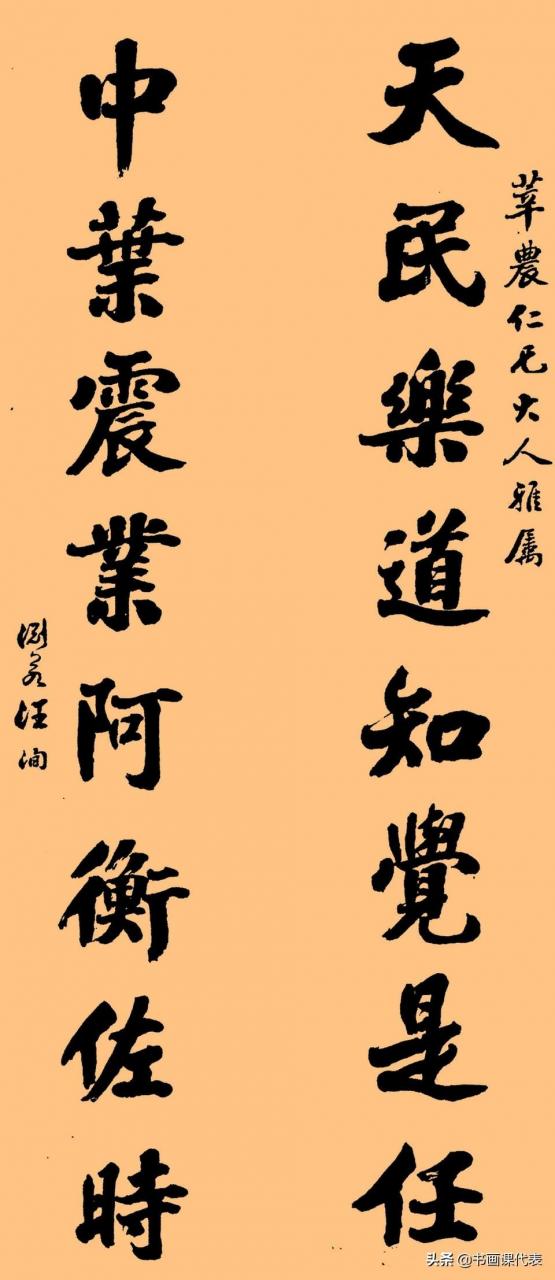 莘農仁兄大人雅屬
天民樂道知覺是任
中葉震業阿衡佐時
汪洵
头条 @书画课代表